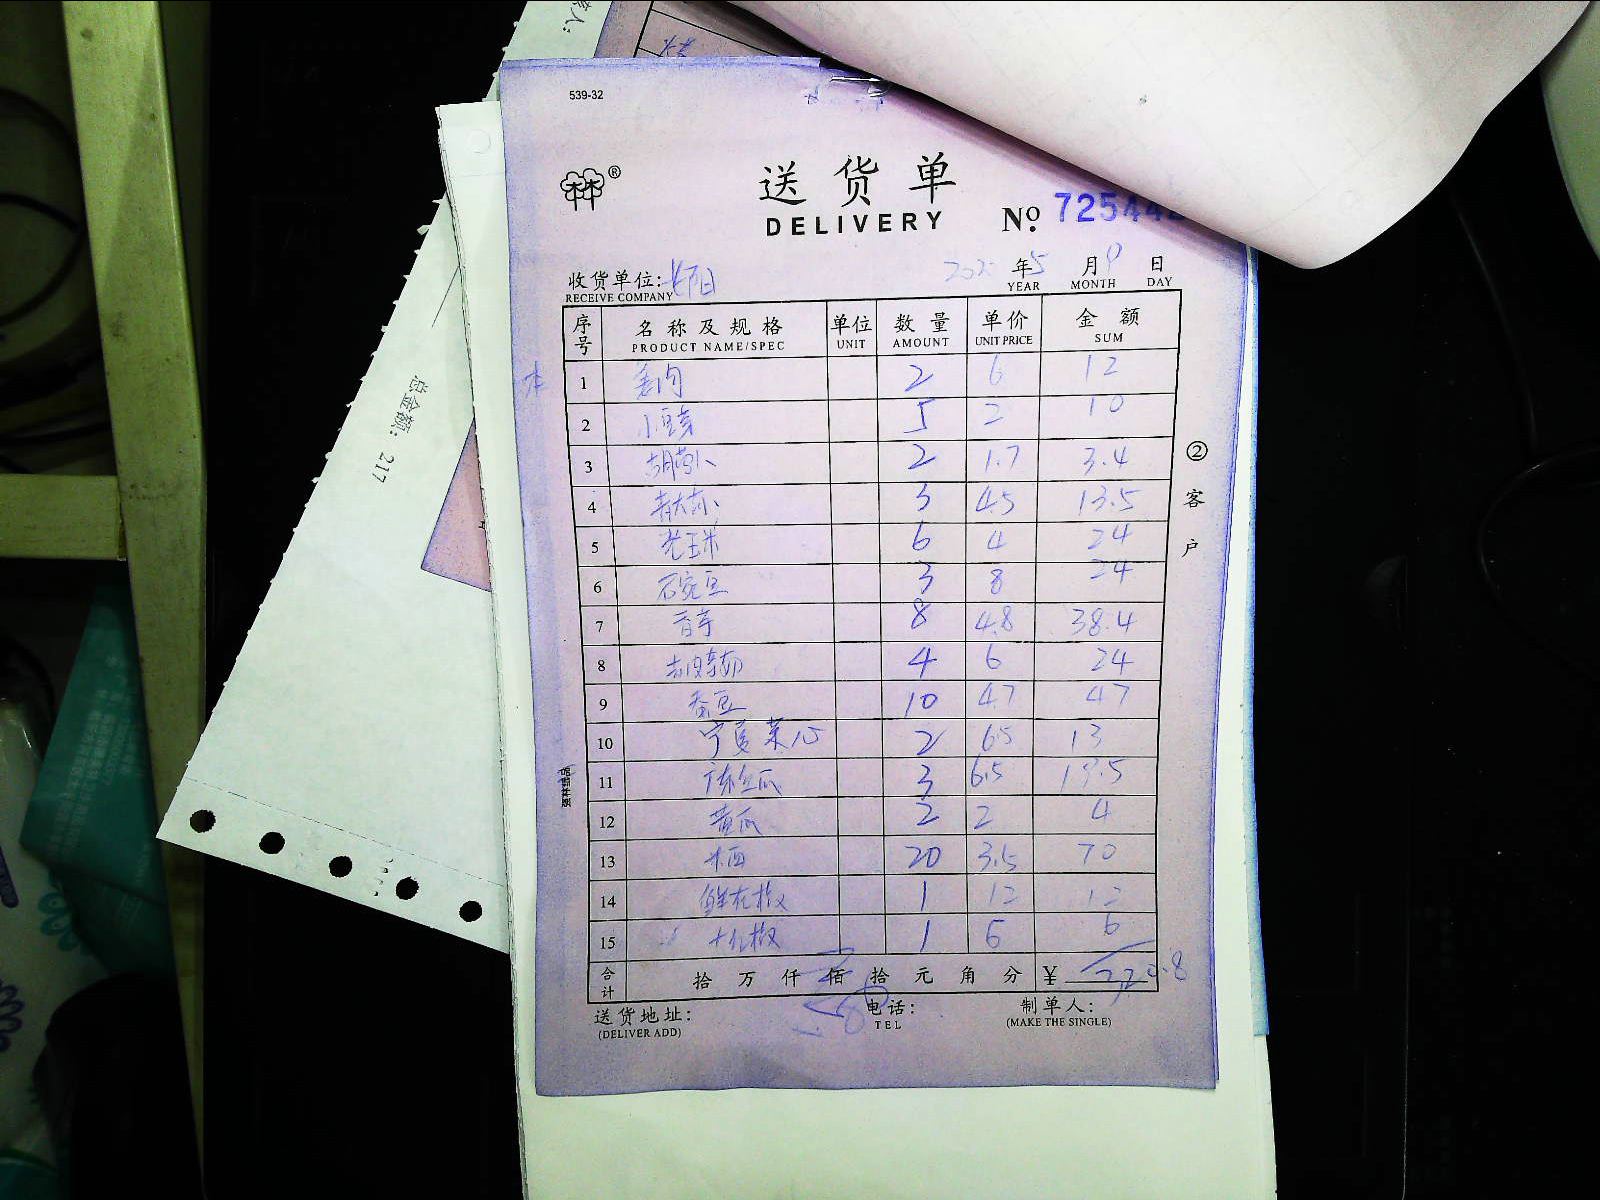 539-32
送货单
DELIVERY
№ 72544
收货单位:
RECEIVE COMPANY
年 5 月 9 日
YEAR MONTH DAY
序号 名称及规格 单位 数量 单价 金额
PRODUCT NAME/SPEC UNIT AMOUNT UNIT PRICE SUM
1 2 6 12
2 小豆芽 5 2 10
3 胡萝卜 2 1.7 3.4
4 3 4.5 13.5
5 老玉米 6 4 24
6 豆 3 8 24
7 香芋 8 4.8 38.4
8 4 6 24
9 蚕豆 10 4.7 47
10 宁夏菜心 2 6.5 13
11 丝瓜 3 6.5 19.5
12 黄瓜 2 2 4
13 20 3.5 70
14 鲜花椒 1 12 12
15 椒 1 6 6
合计 拾 万 仟 佰 拾 元 角 分 ¥
送货地址: 电话: 制单人:
(DELIVER ADD) TEL (MAKE THE SINGLE)
②客户
总金额: 217